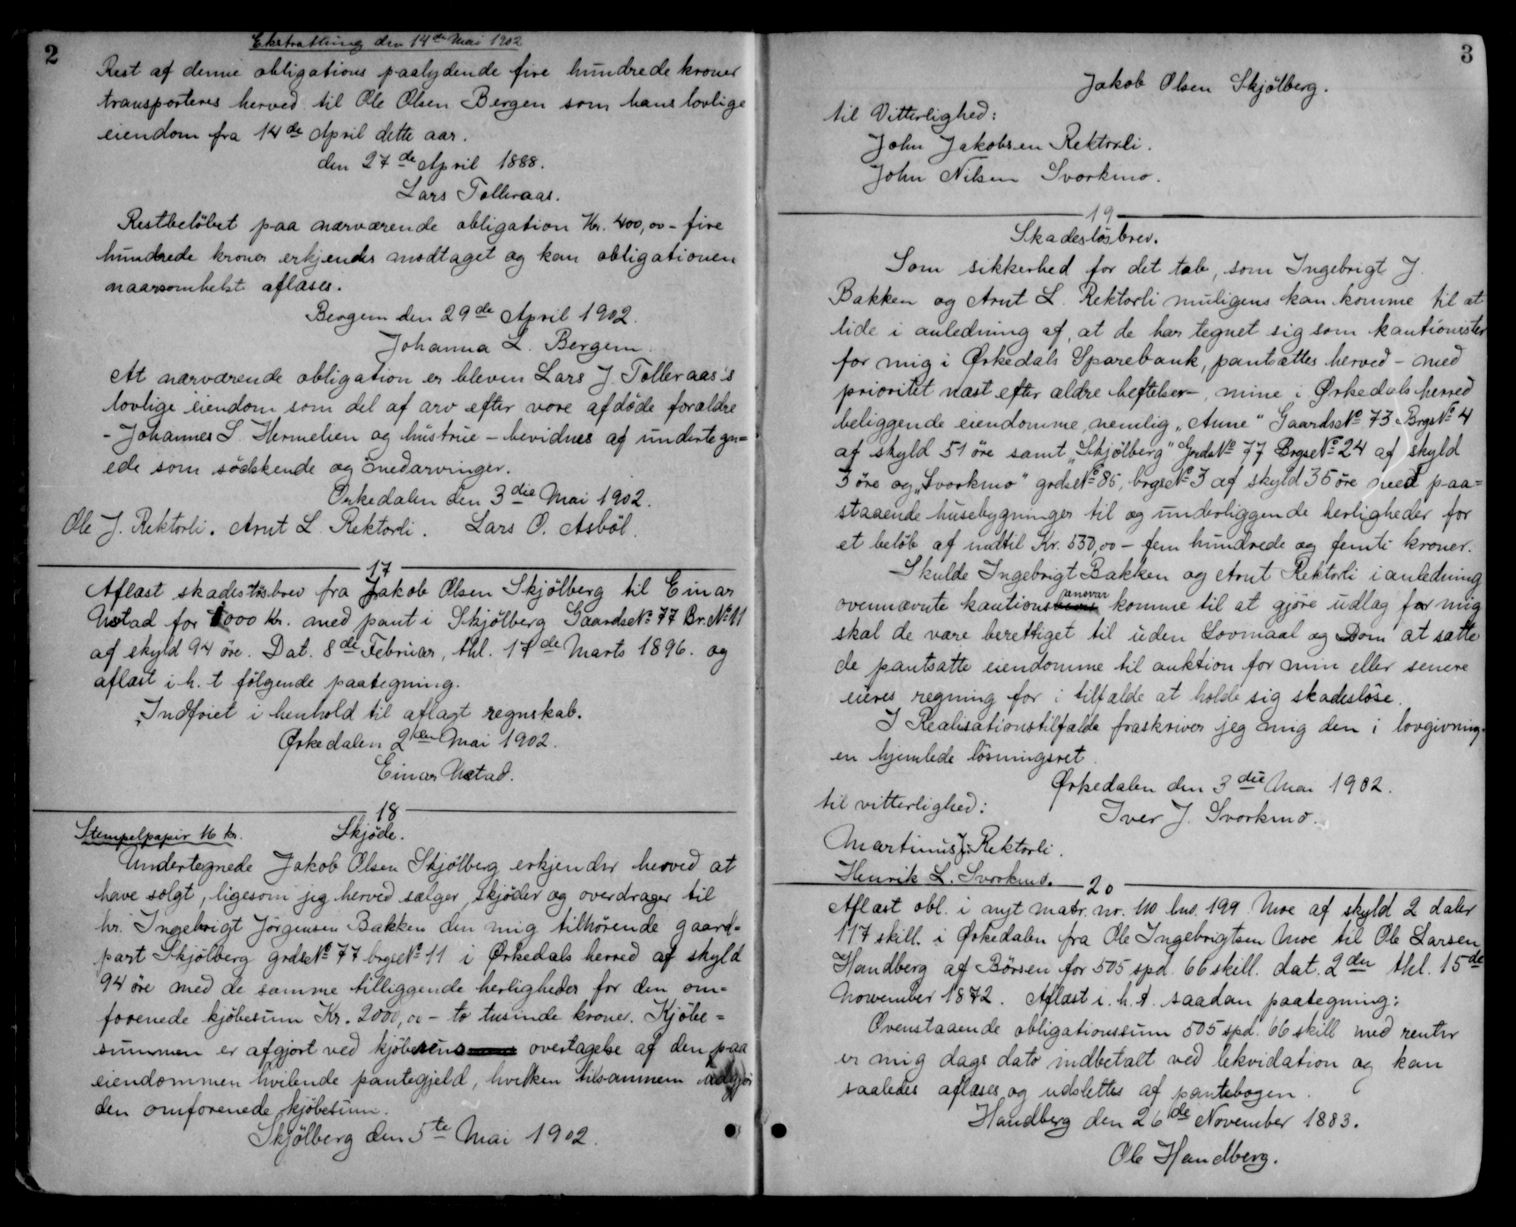 2
Ekstratting den 14de Mai 1902
Rest af denne obligations paalydende fire hundrede kroner
transporteres herved til Ole Olsen Bergen som hans lovlige
eiendom fra 14de April dette aar.
den 27de April 1888.
Lars Tolleraas.
Restbeløbet paa nærværende obligation Kr. 400,00 - fire
hundrede kroner erkjendes modtaget og kan obligationen
naarsomhelst aflæses.
Bergem den 29de April 1902.
Johanna L. Bergem.
At nærværende obligation er bleven Lars J. Tolleraas's
lovlige eiendom som del af arv efter vore afdøde forældre
- Johannes L. Hermelien og hustrue - bevidnes af undertegn=
ede som sødskende og medarvinger.
Orkedalen den 3die Mai 1902.
Ole J. Rektorli. Arnt L. Rektorli. Lars O. Asbøl.
17
Aflæst skadesløsbrev fra Jakob Olsen Skjølberg til Einar
Ustad for 1000 Kr. med pant i Skjølberg Gaardse No 77 Br. No 11
af skyld 94 øre. Dat. 8de Februar, thl. 17de Marts 1896. og
aflæst i h. t følgende paategning.
"Indfriet i henhold til aflagt regnskab.
Ørkedalen 2den Mai 1902.
Einar Ustad.
18
Stempelpapir 16 kr. Skjøde.
Undertegnede Jakob Olsen Skjølberg erkjender herved at
have solgt, ligesom jeg herved sælger, skjøder og overdrager til
hr. Ingebrigt Jørgensen Bakken den mig tilhørende gaard=
part Skjølberg grdse No 77 brgse No 11 i Ørkedals herred af skyld
94 øre med de samme tilliggende herligheder for den om=
forenede kjøbesum Kr. 2000,00 - to tusinde kroner. Kjøbe=
summen er afgjort ved kjøberens overtagelse af den paa
eiendommen hvilende pantegjeld, hvilken tilsammem udgjør
den omforenede kjøbesum.
Skjølberg den 5te Mai 1902.
3
Jakob Olsen Skjølberg.
til Vitterlighed:
John Jakobsen Rektorli.
John Nilsen Svorkmo.
19
Skadesløsbrev.
Som sikkerhed for det tab, som Ingebrigt J.
Bakken og Arnt L. Rektorli muligens kan komme til at
lide i anledning af, at de har tegnet sig som kautionister
for mig i Ørkedals Sparebank, pantsættes herved - med
prioritet næst efter ældre heftelser -, mine i Ørkedals herred
beliggende eiendomme, nemlig „Anne" Gaardse No 73 Brgs No 4
af skyld 51 øre samt „Skjølberg" Grdse No 77 Brgse No 24 af skyld
3 øre og „Svorkmo" grdse No 85, brgse No 3 af skyld 35 øre med paa=
staaende husebygninger til og underliggende herligheder for
et beløb af indtil Kr. 530,00 - fem hundrede og femti kroner.
Skulde Ingebrigt Bakken og Arnt Rektorli i anledning
ovennævnte kautionsansvar komme til at gjøre udlag for mig
skal de være berettiget til uden Lovmaal og Dom at sætte
de pantsatte eiendomme til auktion for min eller senere
eieres regning for i tilfælde at holde sig skadesløse.
I Realisationstilfælde fraskriver jeg mig den i lovgivning=
en hjemlede løsningsret.
Ørkedalen den 3die Mai 1902.
til vitterlighed: Iver J. Svorkmo.
Martinus J. Rektorli.
Henrik L. Svorkmo.
20
Aflæst obl. i nyt matr. nr. 110 bns. 199 Moe af skyld 2 daler
117 skill. i Ørkedalen fra Ole Ingebrigtsen Moe til Ole Larsen
Handberg af Børsen for 505 spd. 66 skill. dat. 2den thl. 15de
November 1872. Aflæst i. h. t. saadan paategning:
Ovenstaaende obligationssum 505 spd. 66 skill med renter
er mig dags dato indbetalt ved lekvidation og kan
saaledes aflæses og udslettes af pantebogen.
Handberg den 26de November 1883.
Ole Handberg.